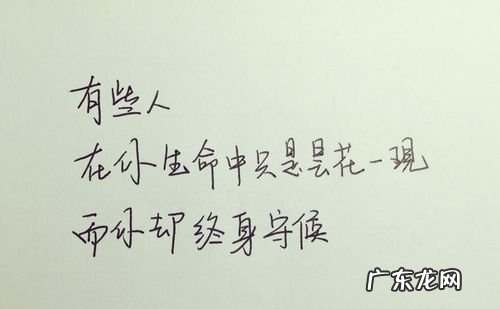 有些人
在你生命中只是昙花一现
而你却终身守候
广东龙网